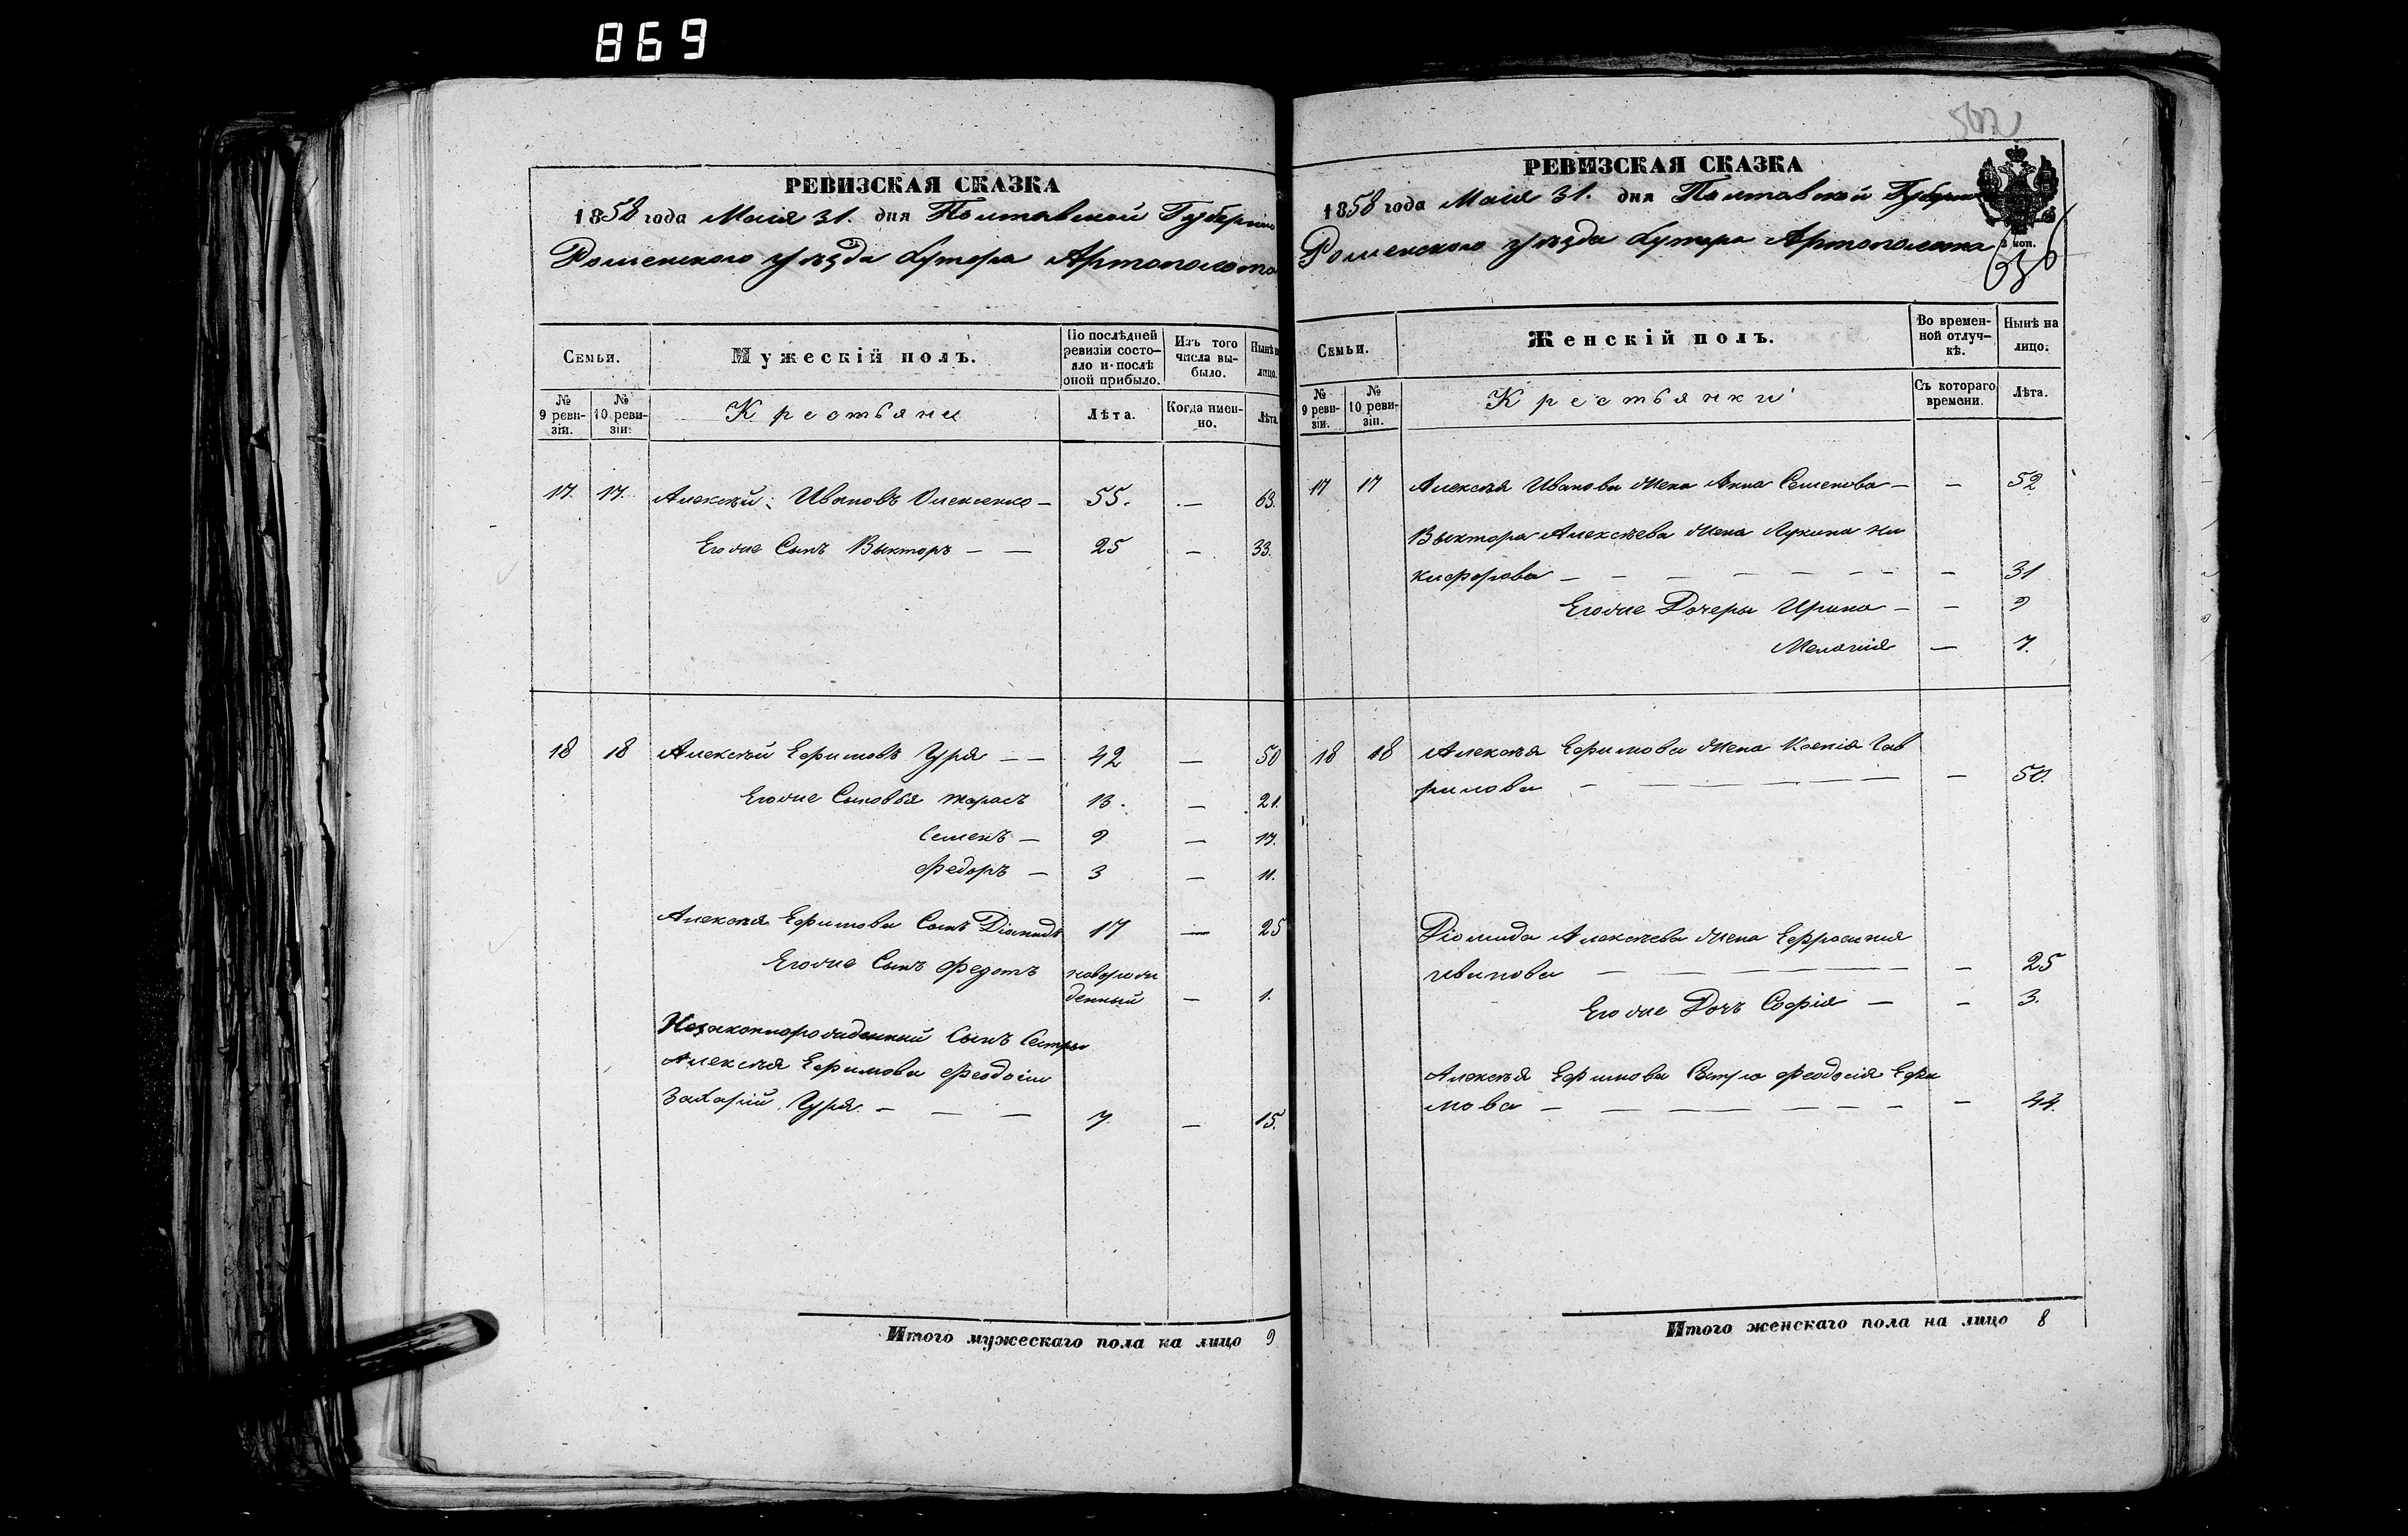 869
РЕВИЗСКАЯ СКАЗКА
1858 года Маія 31. дня Полтавской Губерніи
Роменского уѣзда Хутора Артополота
Семьи.
Мужескій полъ.
По послѣдней ревизіи состо-
яло и послѣ оной прибыло.
Изъ того числа вы-
было.
Нынѣ на лицо.
№ 9 реви-
зіи.
№ 10 реви-
зіи.
Крестьяни
Лѣта.
Когда имен-
но.
Лѣта
17. 17. Алексѣй Ивановъ Олексенко — 55. — 63.
Егоже Сынъ Выкторъ — — 25 — 33.
18 18 Алексѣй Ефимовъ Цуря — — 42 — 50
Егоже Сыновья Тарасъ 13. — 21.
Семенъ — 9 — 17.
Федоръ — 3 — 11.
Алексѣя Ефимова Сынъ Діомидъ 17 — 25
Егоже Сынъ Федотъ новорож
денный — 1.
Незаконнорожденный Сынъ Сестры
Алексѣя Ефимова Феодосіи
Захарій Цуря — — — 7. — 15.
Итого мужескаго пола на лицо 9
РЕВИЗСКАЯ СКАЗКА
1858 года Маія 31. дня Полтавской Губерніи
Роменского уѣзда Хутора Артополота
коп.
Семьи.
Женскій полъ.
Во времен-
ной отлуч-
кѣ.
Нынѣ на лицо.
№ 9 реви-
зіи.
№ 10 реви-
зіи.
Крестьянки
Съ котораго времени.
Лѣта.
17 17 Алексѣя Иванова жена Анна Семенова — — 52
Выктора Алексѣева жена Лукина Ни
кифорова — — — — — — — — 31
Егоже Дочеры Ирина — — 9
Меланія — 7.
18 18 Алексѣя Ефимова жена Ксенія Гав
рилова — — — — — — — 50.
Діомида Алексѣева жена Ефросинія
Иванова — — — — — — — 25
Егоже Дочь Софія — — 3.
Алексѣя Ефимова Сестра Феодосія Ефи
мова — — — — — — — — 44.
Итого женскаго пола на лицо 8